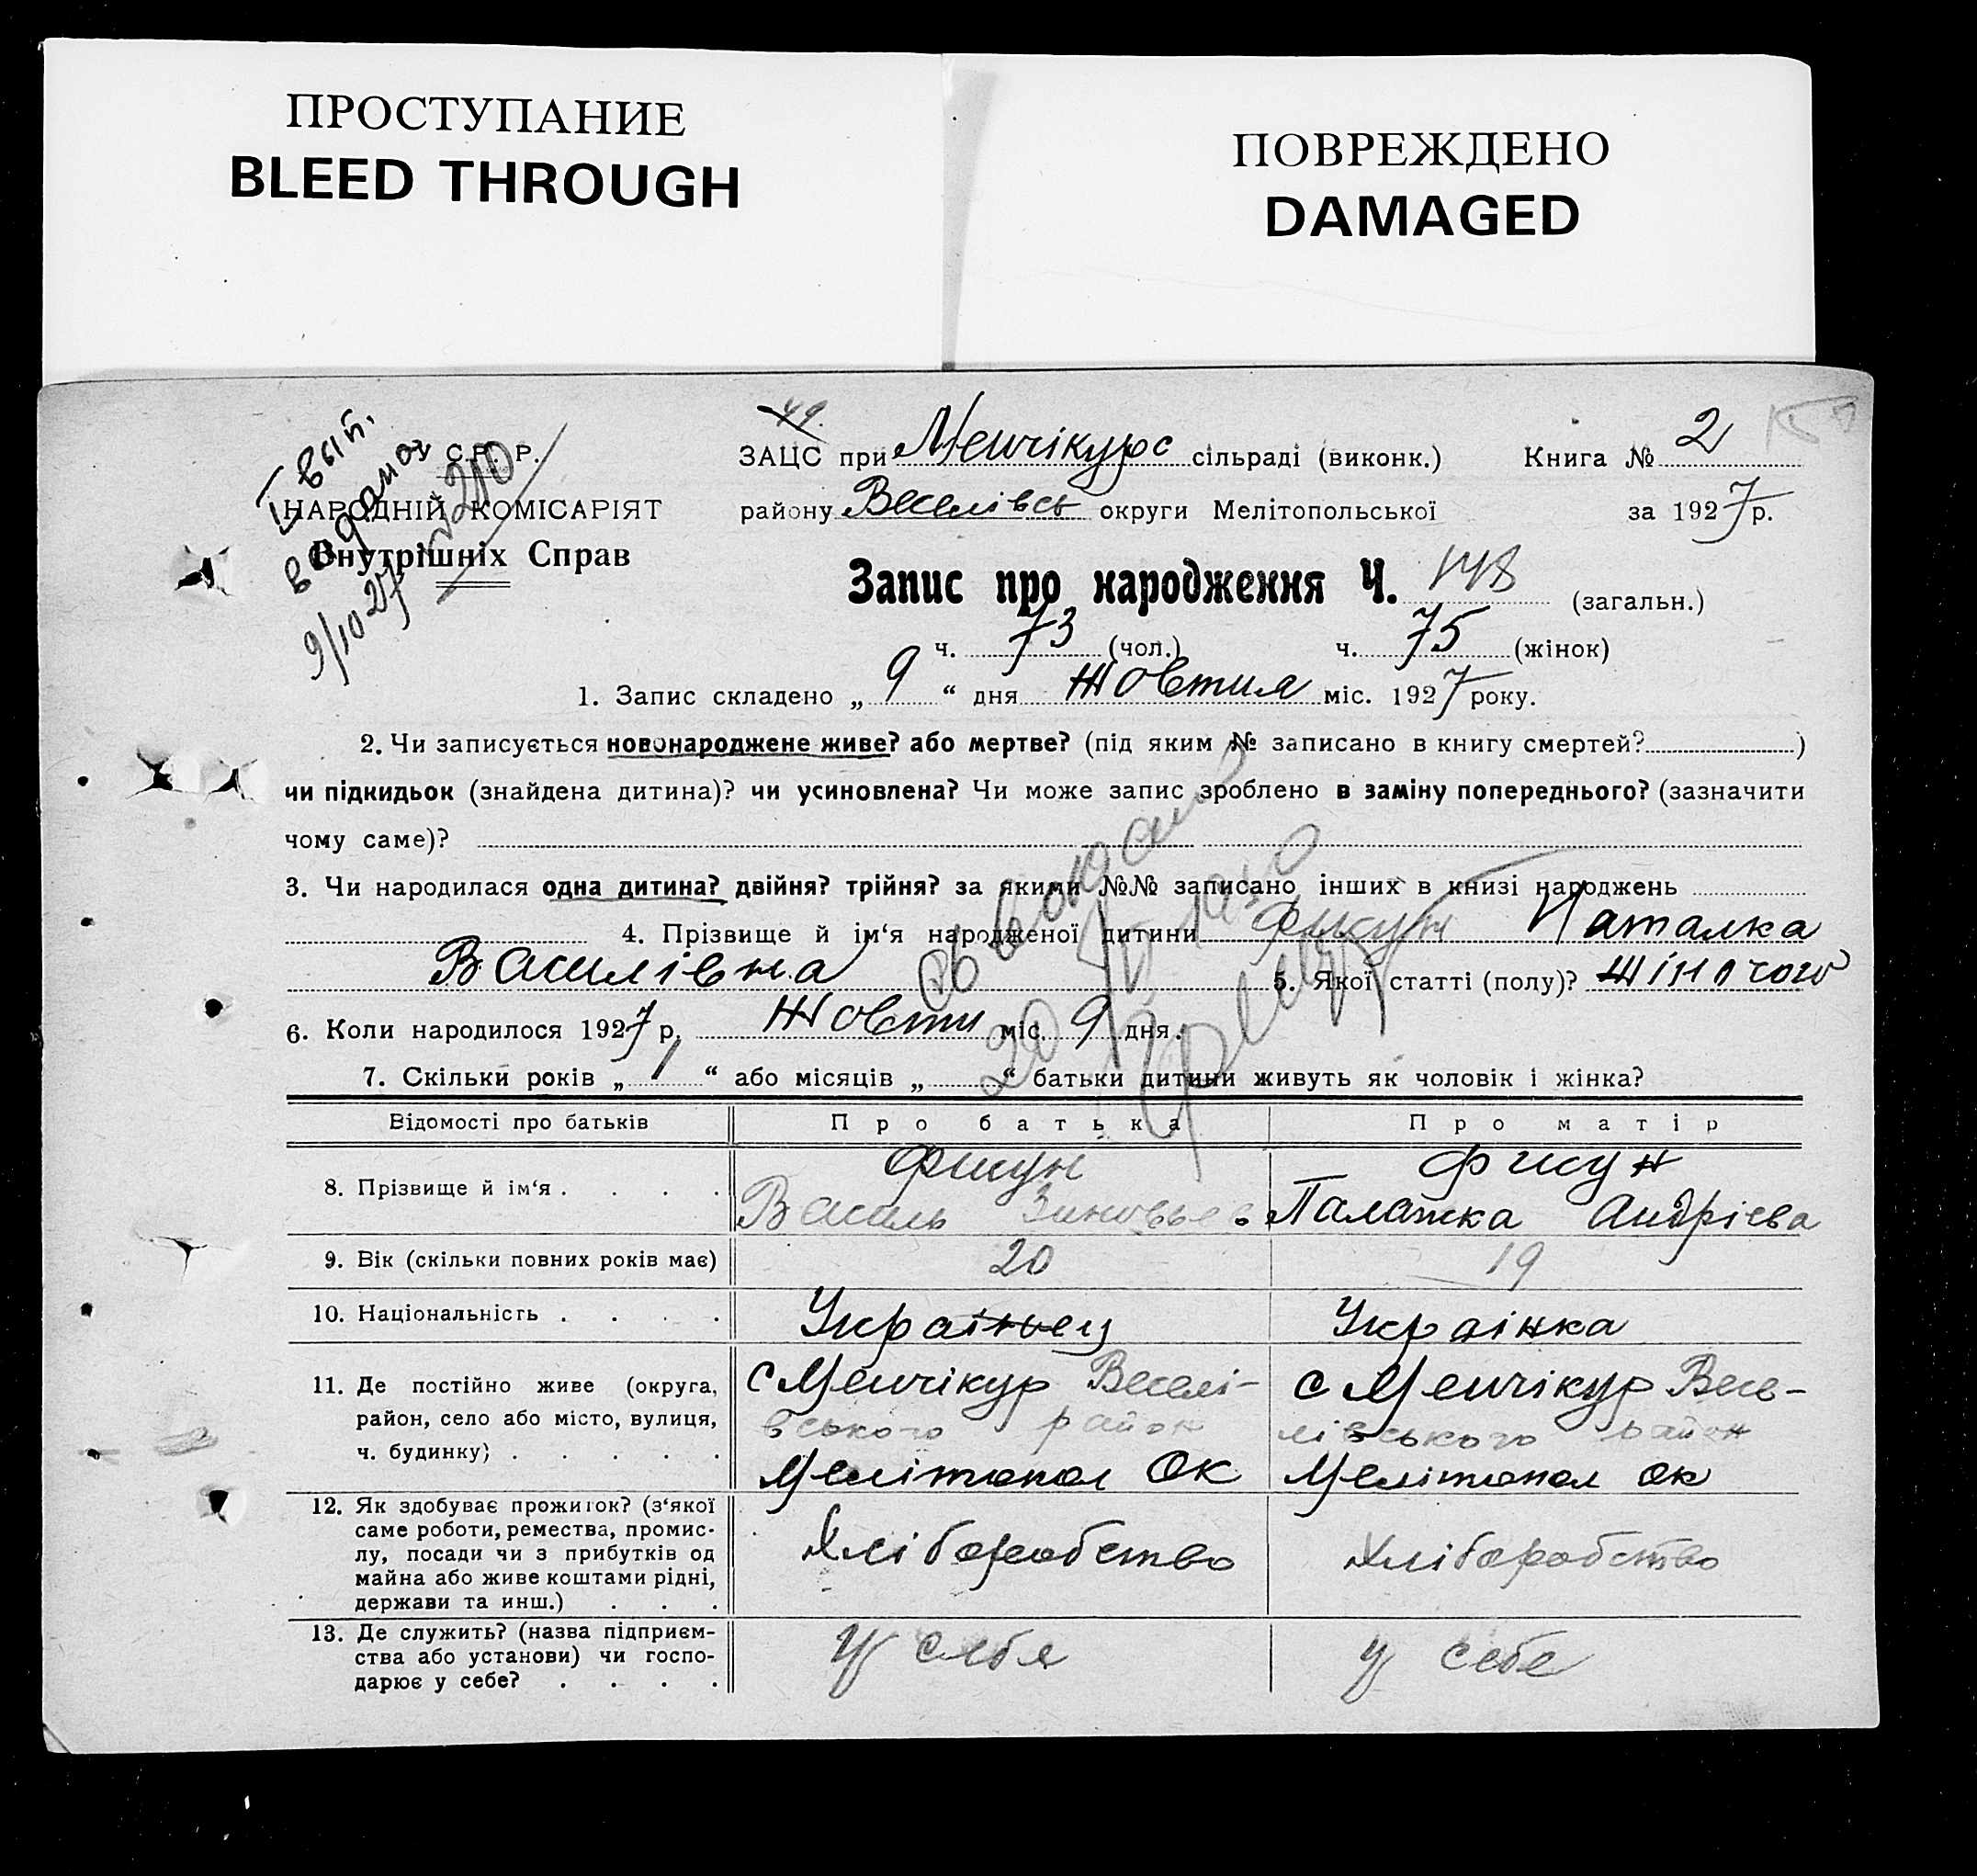 ПРОСТУПАНИЕ
BLEED THROUGH
ПОВРЕЖДЕНО
DAMAGED
49.
І вып.
9/10 27
№ 210
С.Р.Р.
НАРОДНІЙ КОМІСАРІЯТ
Внутрішніх Справ
ЗАЦС при Менчікурс сільраді (виконк.) Книга № 2
району Веселівсь округи Мелітопольської за 1927 р.
Запис про народження Ч. 148 (загальн.)
ч. 73 (чол.) ч. 75 (жінок)
1. Запис складено „ 9 “ дня Жовтня міс. 1927 року.
2. Чи записується новонароджене живе? або мертве? (під яким № записано в книгу смертей? )
чи підкидьок (знайдена дитина)? чи усиновлена? Чи може запис зроблено в заміну попереднього? (зазначити
чому саме)?
3. Чи народилася одна дитина? двійня? трійня? за якими №№ записано інших в книзі народжень
4. Прізвище й ім‘я народженої дитини Фисун Наталка
Василівна 5. Якої статті (полу)? Жіночого
6. Коли народилося 1927 р. Жовтн міс. 9 дня.
7. Скільки років „ 1 “ або місяців „ “ батьки дитини живуть як чоловік і жінка?
Відомості про батьків Про батька Про матір
8. Прізвище й ім‘я . . . . Фисун Василь Зиновьев Фисун Палажка Андрієва
9. Вік (скільки повних років має) 20 19
10. Національність . . . . Українец Українка
11. Де постійно живе (округа,
район, село або місто, вулиця,
ч. будинку) . . . . .
с Менчікур Веселі-
вського район
Мелітопол Ок
с Менчікур Весе-
лівського район
Мелітопол ок
12. Як здобуває прожиток? (з‘якої
саме роботи, ремества, промис-
лу, посади чи з прибутків од
майна або живе коштами рідні,
держави та инш.) . . .
Хліборобство Хліборобство
13. Де служить? (назва підприєм-
ства або установи) чи госпо-
дарює у себе? . . . .
У себя У себе